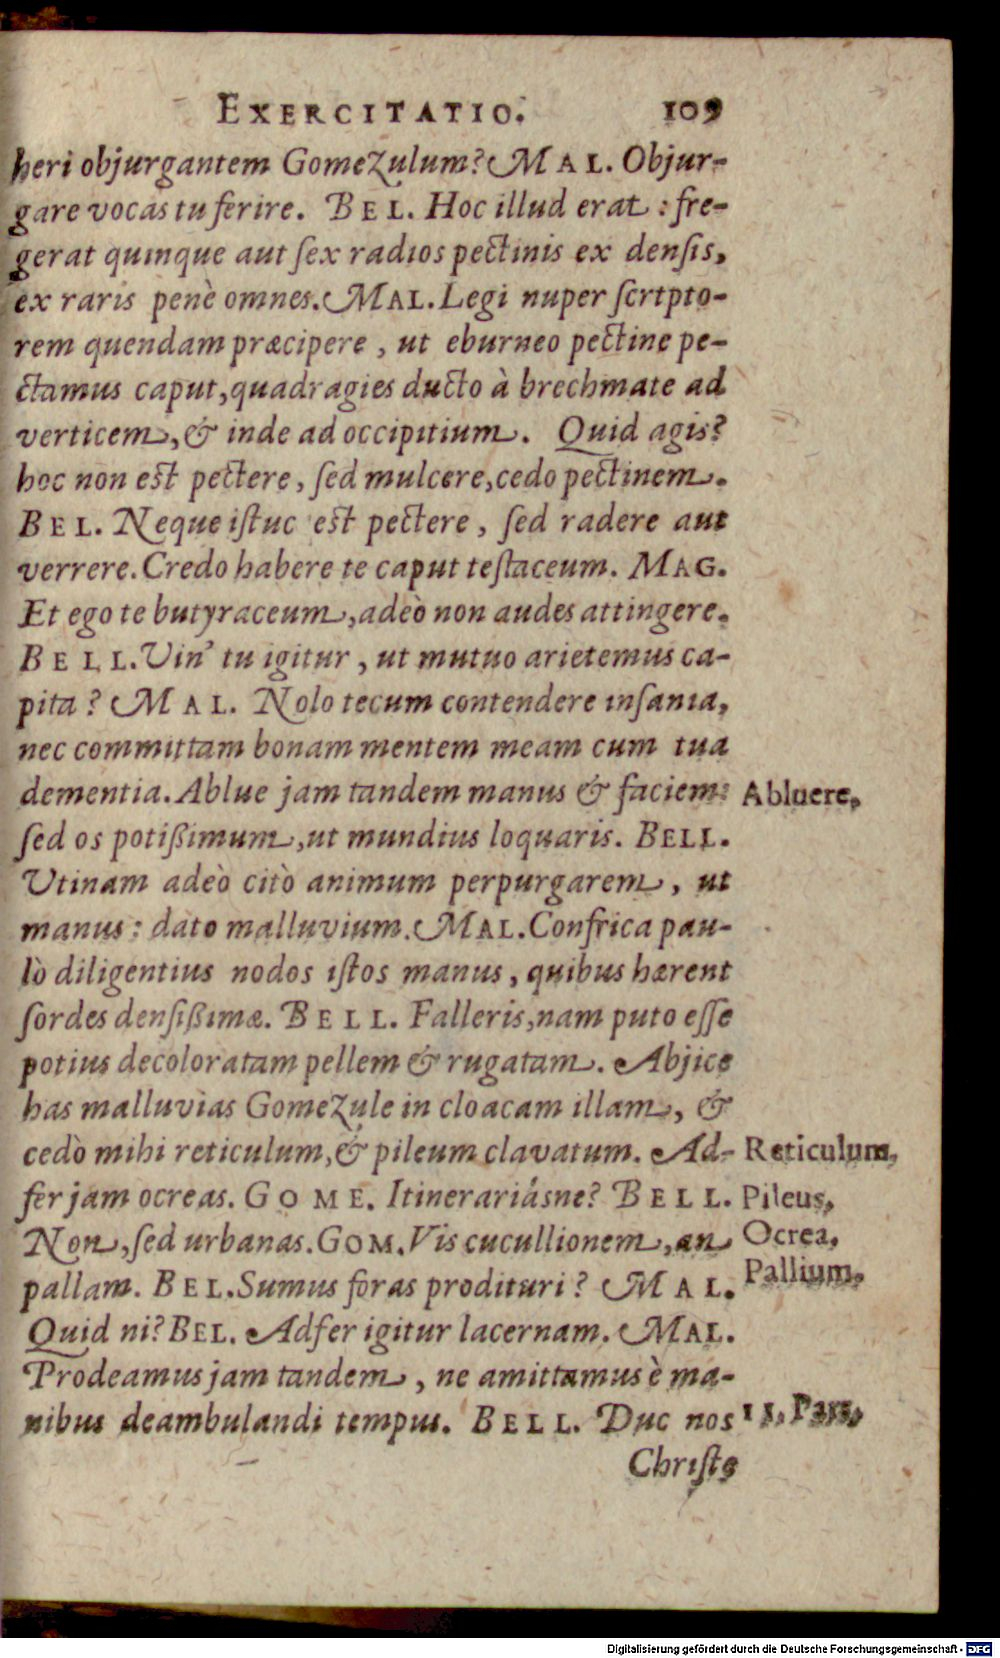 EXERCITATIO. 109
heri objurgantem Gomezulum? MAL. Objur-
gare vocas tu ferire. BEL. Hoc illud erat : fre-
gerat quinque aut ſex radios pectinis ex denſis,
ex raris penè omnes. MAL. Legi nuper ſcrtpto-
rem quendam præcipere , ut eburneo pectine pe-
ctamus caput, quadragies ducto à brechmate ad
verticem, & inde ad occipitium. Quid agis?
hoc non est pectere , ſed mulcere, cedo pectinem.
BEL. Neque iſtuc est pectere , ſed radere aut
verrere. Credo habere te caput teſtaceum. MAG.
Et ego te butyraceum, adeò non audes attingere.
BELL. Vin' tu igitur , ut mutuo arietemus ca-
pita ? MAL. Nolo tecum contendere inſania,
nec committam bonam mentem meam cum tua
dementia. Ablue jam tandem manus & faciem: Abluere,
ſed os potiſſimum, ut mundius loquaris. BELL.
Vtinam adeò citò animum perpurgarem, ut
manus : dato malluvium. MAL. Confrica pau-
lò diligentius nodos iſtos manus , quibus hærent
ſordes denſiſſimæ. BELL. Falleris, nam puto eſſe
potius decoloratam pellem & rugatam. Abjice
has malluvias Gomezule in cloacam illam, &
cedò mihi reticulum, & pileum clavatum. Ad- Reticulum,
fer jam ocreas. GOME. Itinerariásne? BELL. Pileus,
Non, ſed urbanas. GOM. Vis cucullionem, an Ocrea,
pallam. BEL. Sumus foras prodituri ? MAL. Pallium,
Quid ni? BEL. Adfer igitur lacernam. MAL.
Prodeamus jam tandem , ne amittamus è ma-
nibus deambulandi tempus. BELL. Duc nos II, Pars,
Chriſte
Digitalisierung gefördert durch die Deutsche Forschungsgemeinschaft - DFG